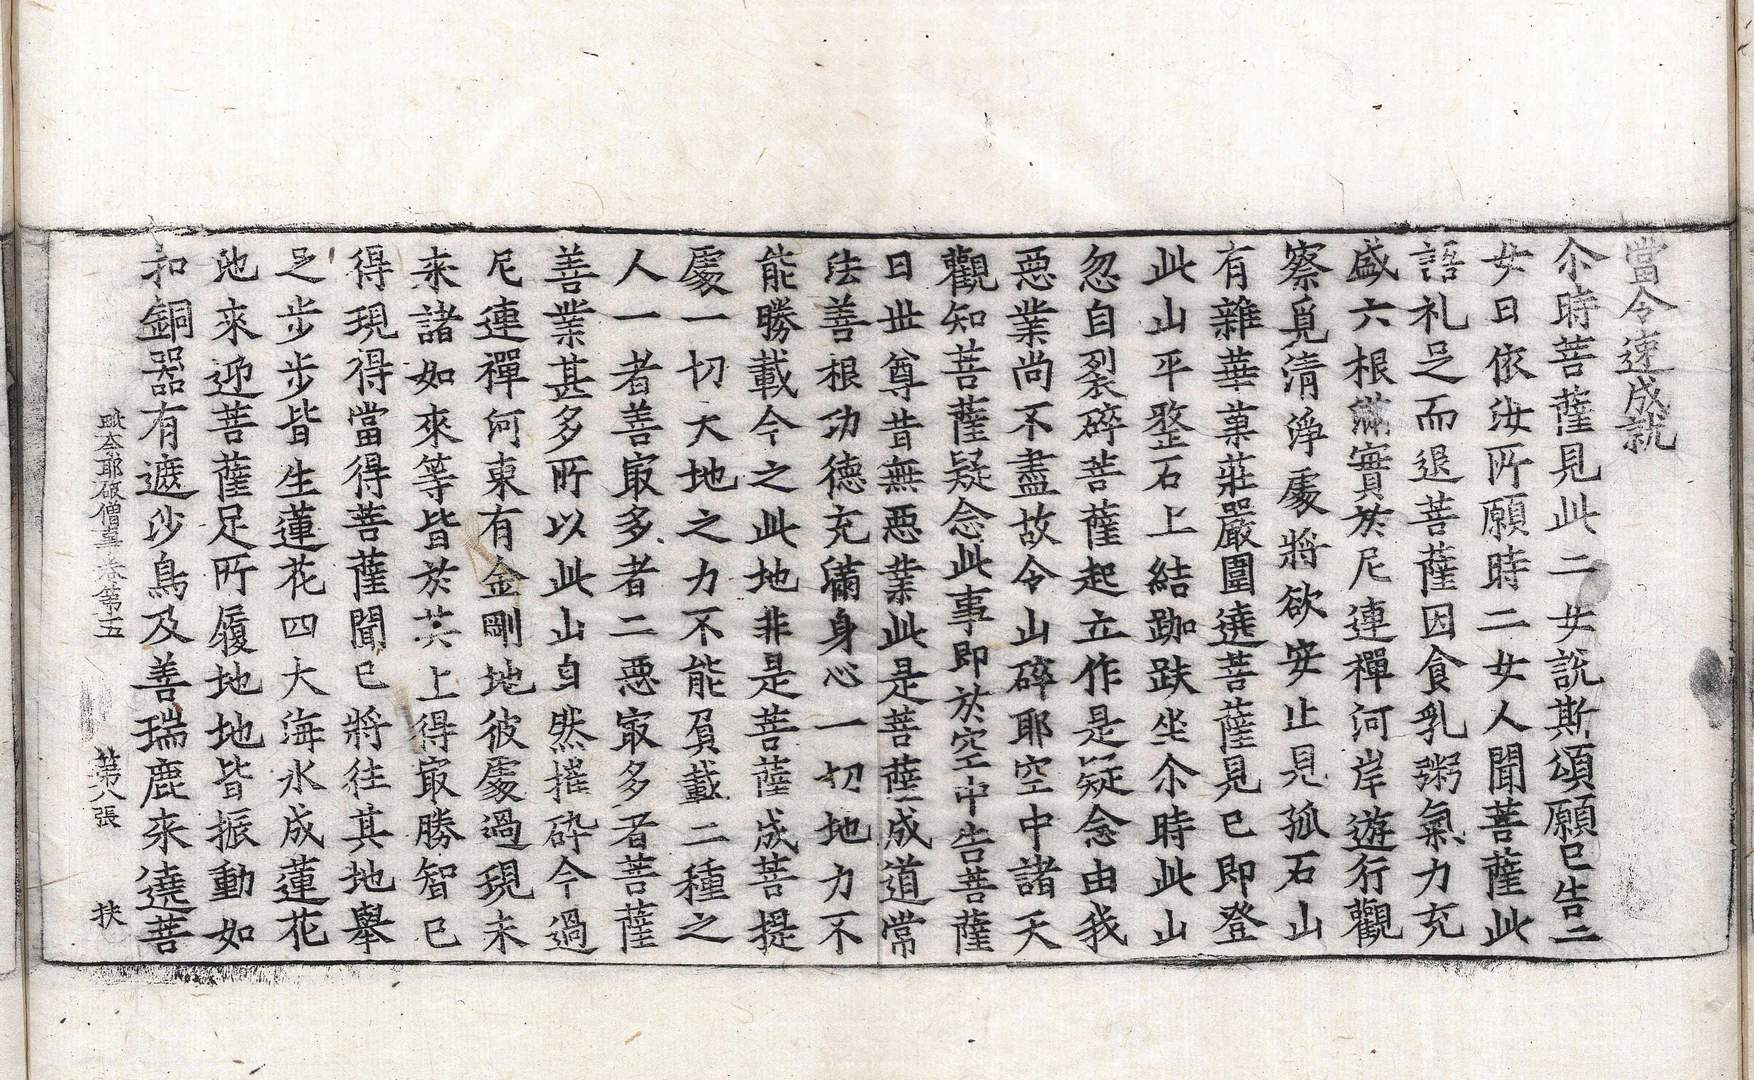 當令速成就
尒時菩薩見此二女說斯頌願已告二
女曰依汝所願時二女人聞菩薩此
語礼足而退菩薩因食乳粥氣力充
盛六根滿實於尼連禪河岸遊行觀
察覓清淨處將欲安止見孤石山
有雜華菓莊嚴圍遶菩薩見已即登
此山平整石上結跏趺坐尒時此山
忽自裂碎菩薩起立作是疑念由我
惡業尚不盡故令山碎耶空中諸天
觀知菩薩疑念此事即於空中告菩薩
曰世尊昔無惡業此是菩薩成道常
法善根功德充滿身心一切地力不
能勝載今之此地非是菩薩成菩提
處一切天地之力不能負載二種之
人一者善㝡多者二惡㝡多者菩薩
善業甚多所以此山自然摧碎今過
尼連禪河東有金剛地彼處過現未
来諸如來等皆於其上得㝡勝智已
得現得當得菩薩聞已將往其地舉
足步步皆生蓮花四大海水成蓮花
池來迎菩薩足所履地地皆振動如
扣銅器有遮沙鳥及善瑞鹿来遶菩
毗奈耶破僧事卷第五 第八張 扶